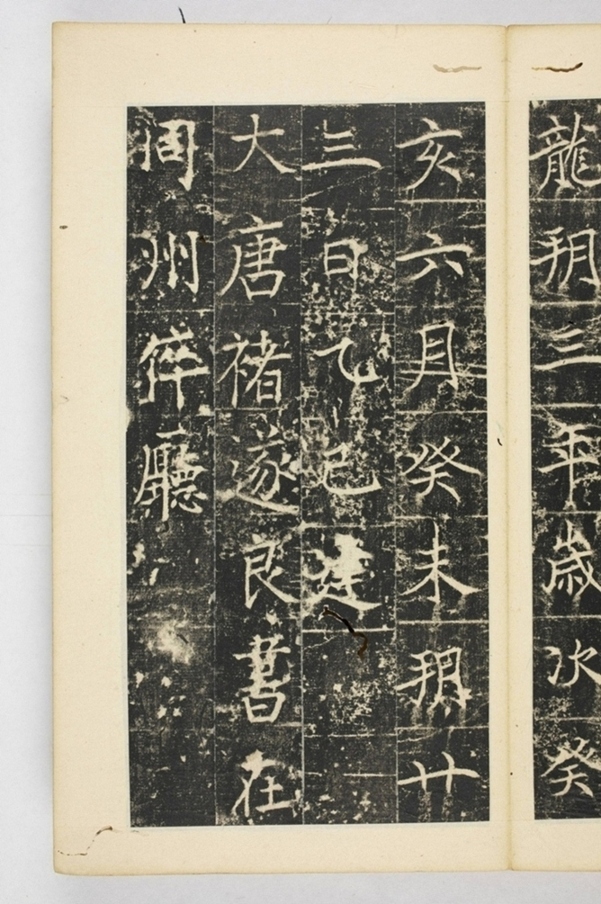 龍朔三年歲次癸
亥六月癸未朔廿
三日乙巳建
大唐褚遂良書在
同州倅廳